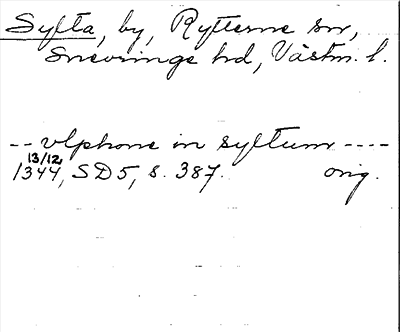 Sylta, by, Rytterne sn,
Snevringe hd, Västm. l.
-- vlphone in syltum ----
13/12
1344, SD5, s. 387. orig.